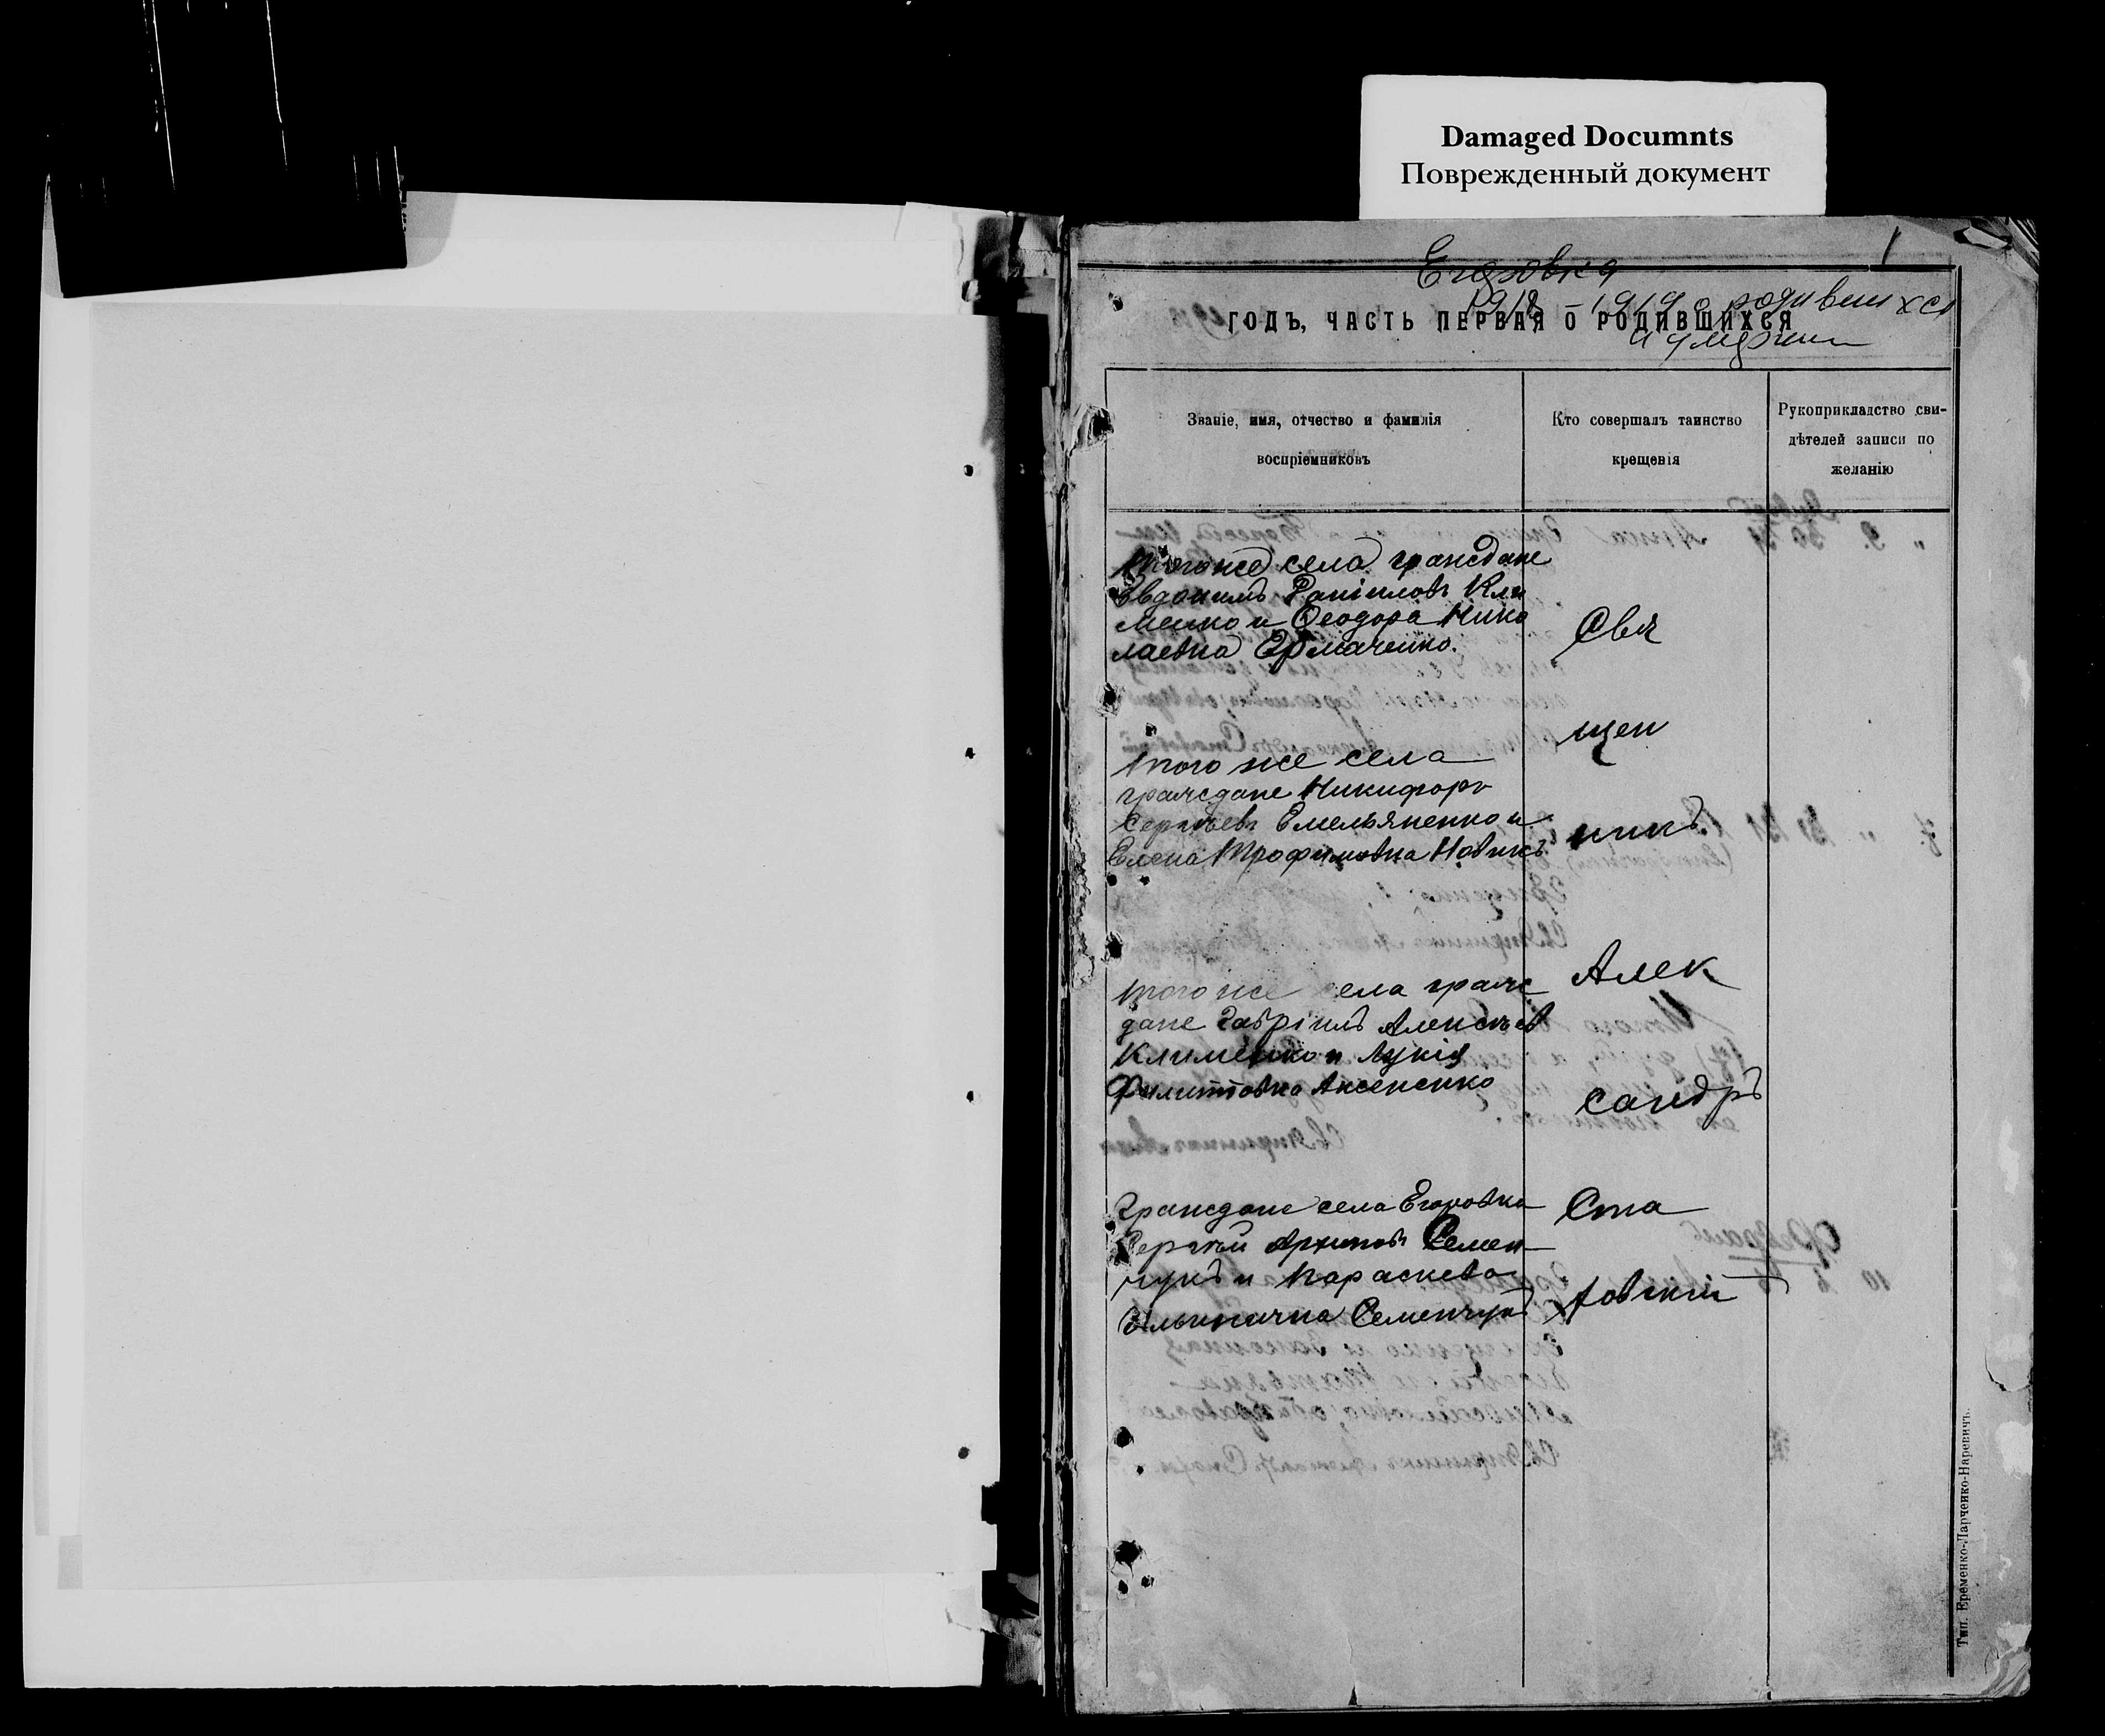 Damaged Documnts
Поврежденный документ
1
Егоровка
1918 – 1919 о родившихся
ГОДЪ, ЧАСТЬ ПЕРВАЯ О РОДИВШИХСЯ
и умерши
Званіе, имя, отчество и фамилія
воспріемниковъ
Кто совершалъ таинство
крещенія
Рукоприкладство сви-
дѣтелей записи по
желанію
того же села граждане
Евдокимъ Кли
менко и Ѳеодора Нико
лаевна Ермаченко.
Свя
щен
никъ
Алек
сандръ
Ста
ховскій
того же села
граждане Никифоръ
Сергѣевъ Емельяненко и
Елена Трофимовна Новикъ
того же села граж
дане Гавріилъ Алексѣев
Клименко и Лукія
Филипповна Аксененко
Граждане села Егоровка
Сергѣй Архиповъ Семен-
чукъ и Параскева
Ильинична Семенчукъ
Тип. Еременко-Ларченко-Наревичъ.